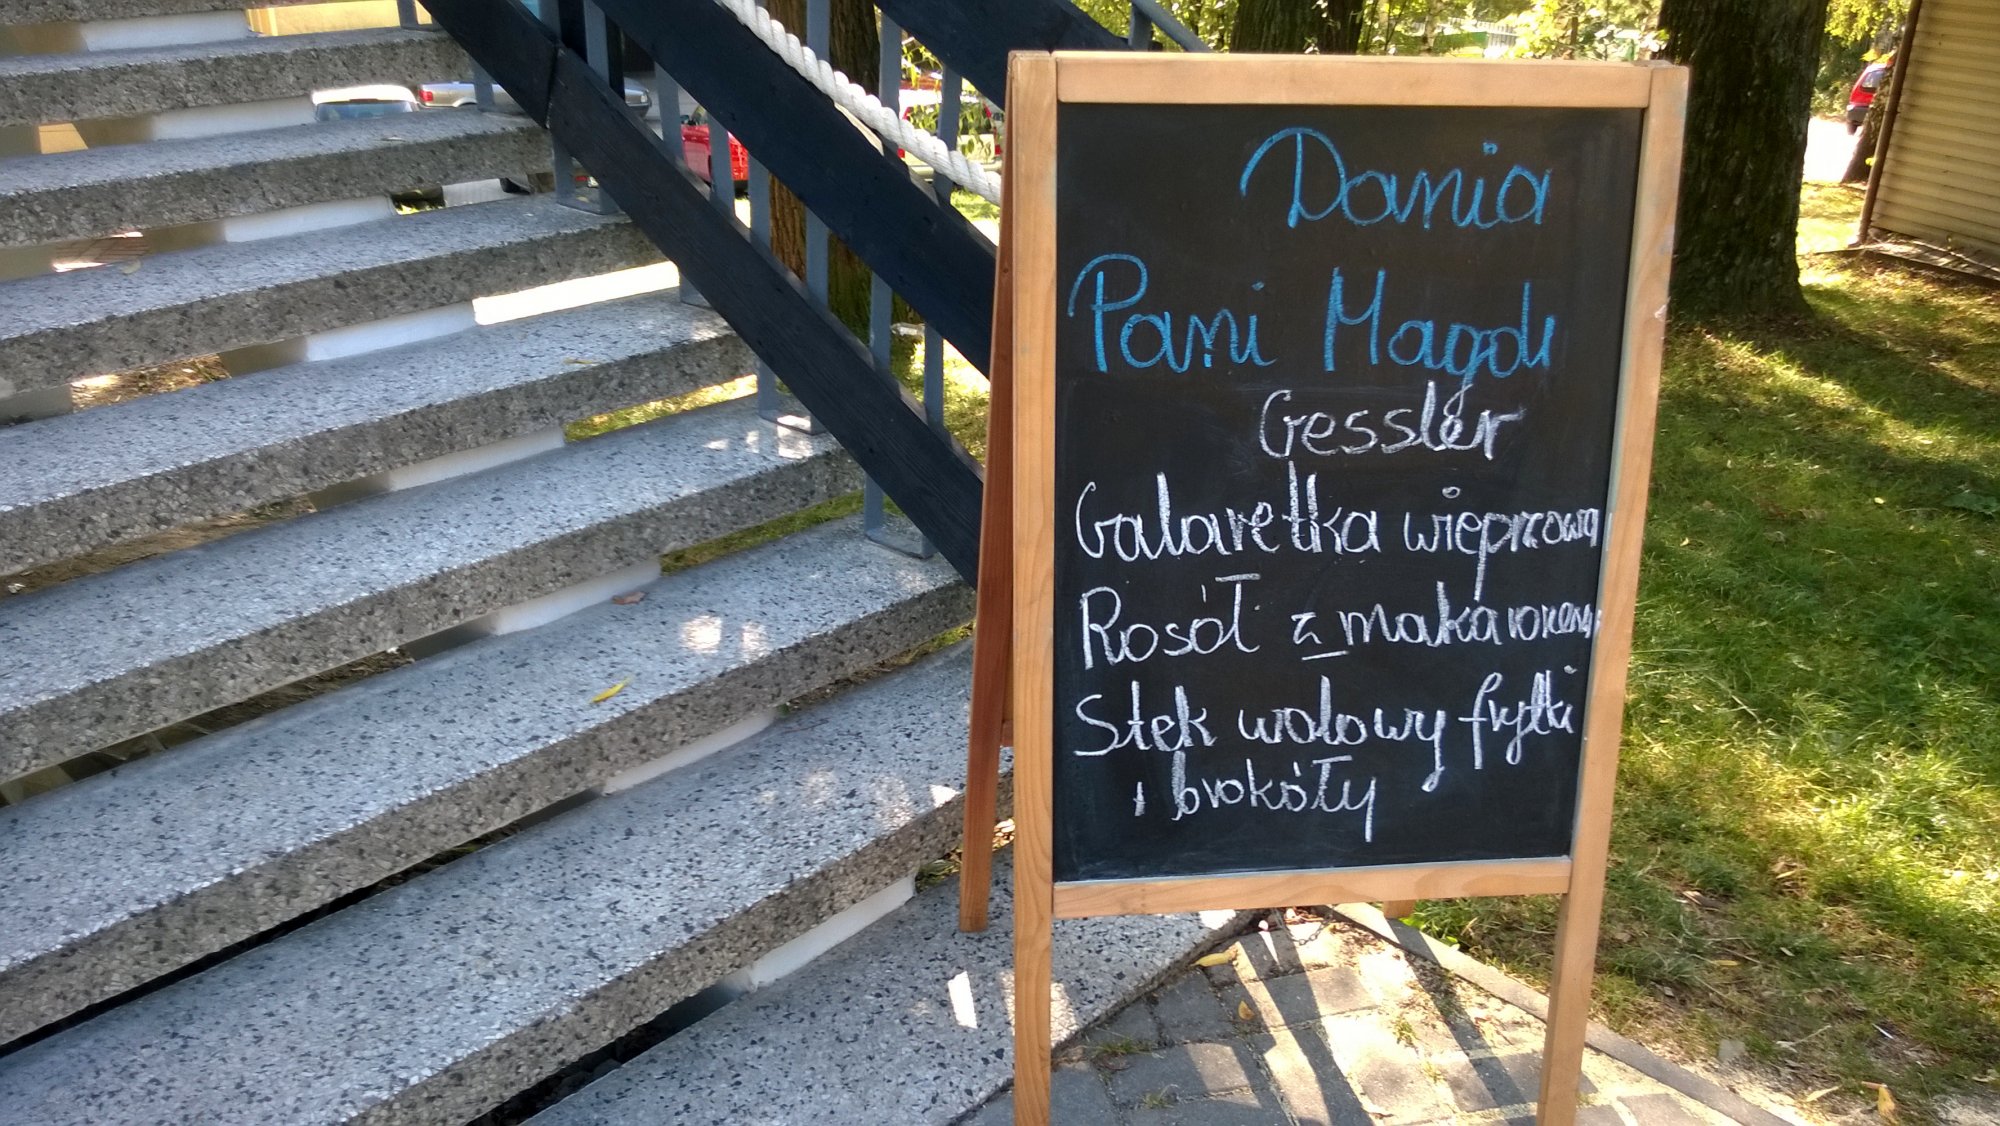 Dania
Pani Magdy
Gessler
Galaretka wieprzowa
Rosół z makaronem
Stek wołowy frytki
i brokóły